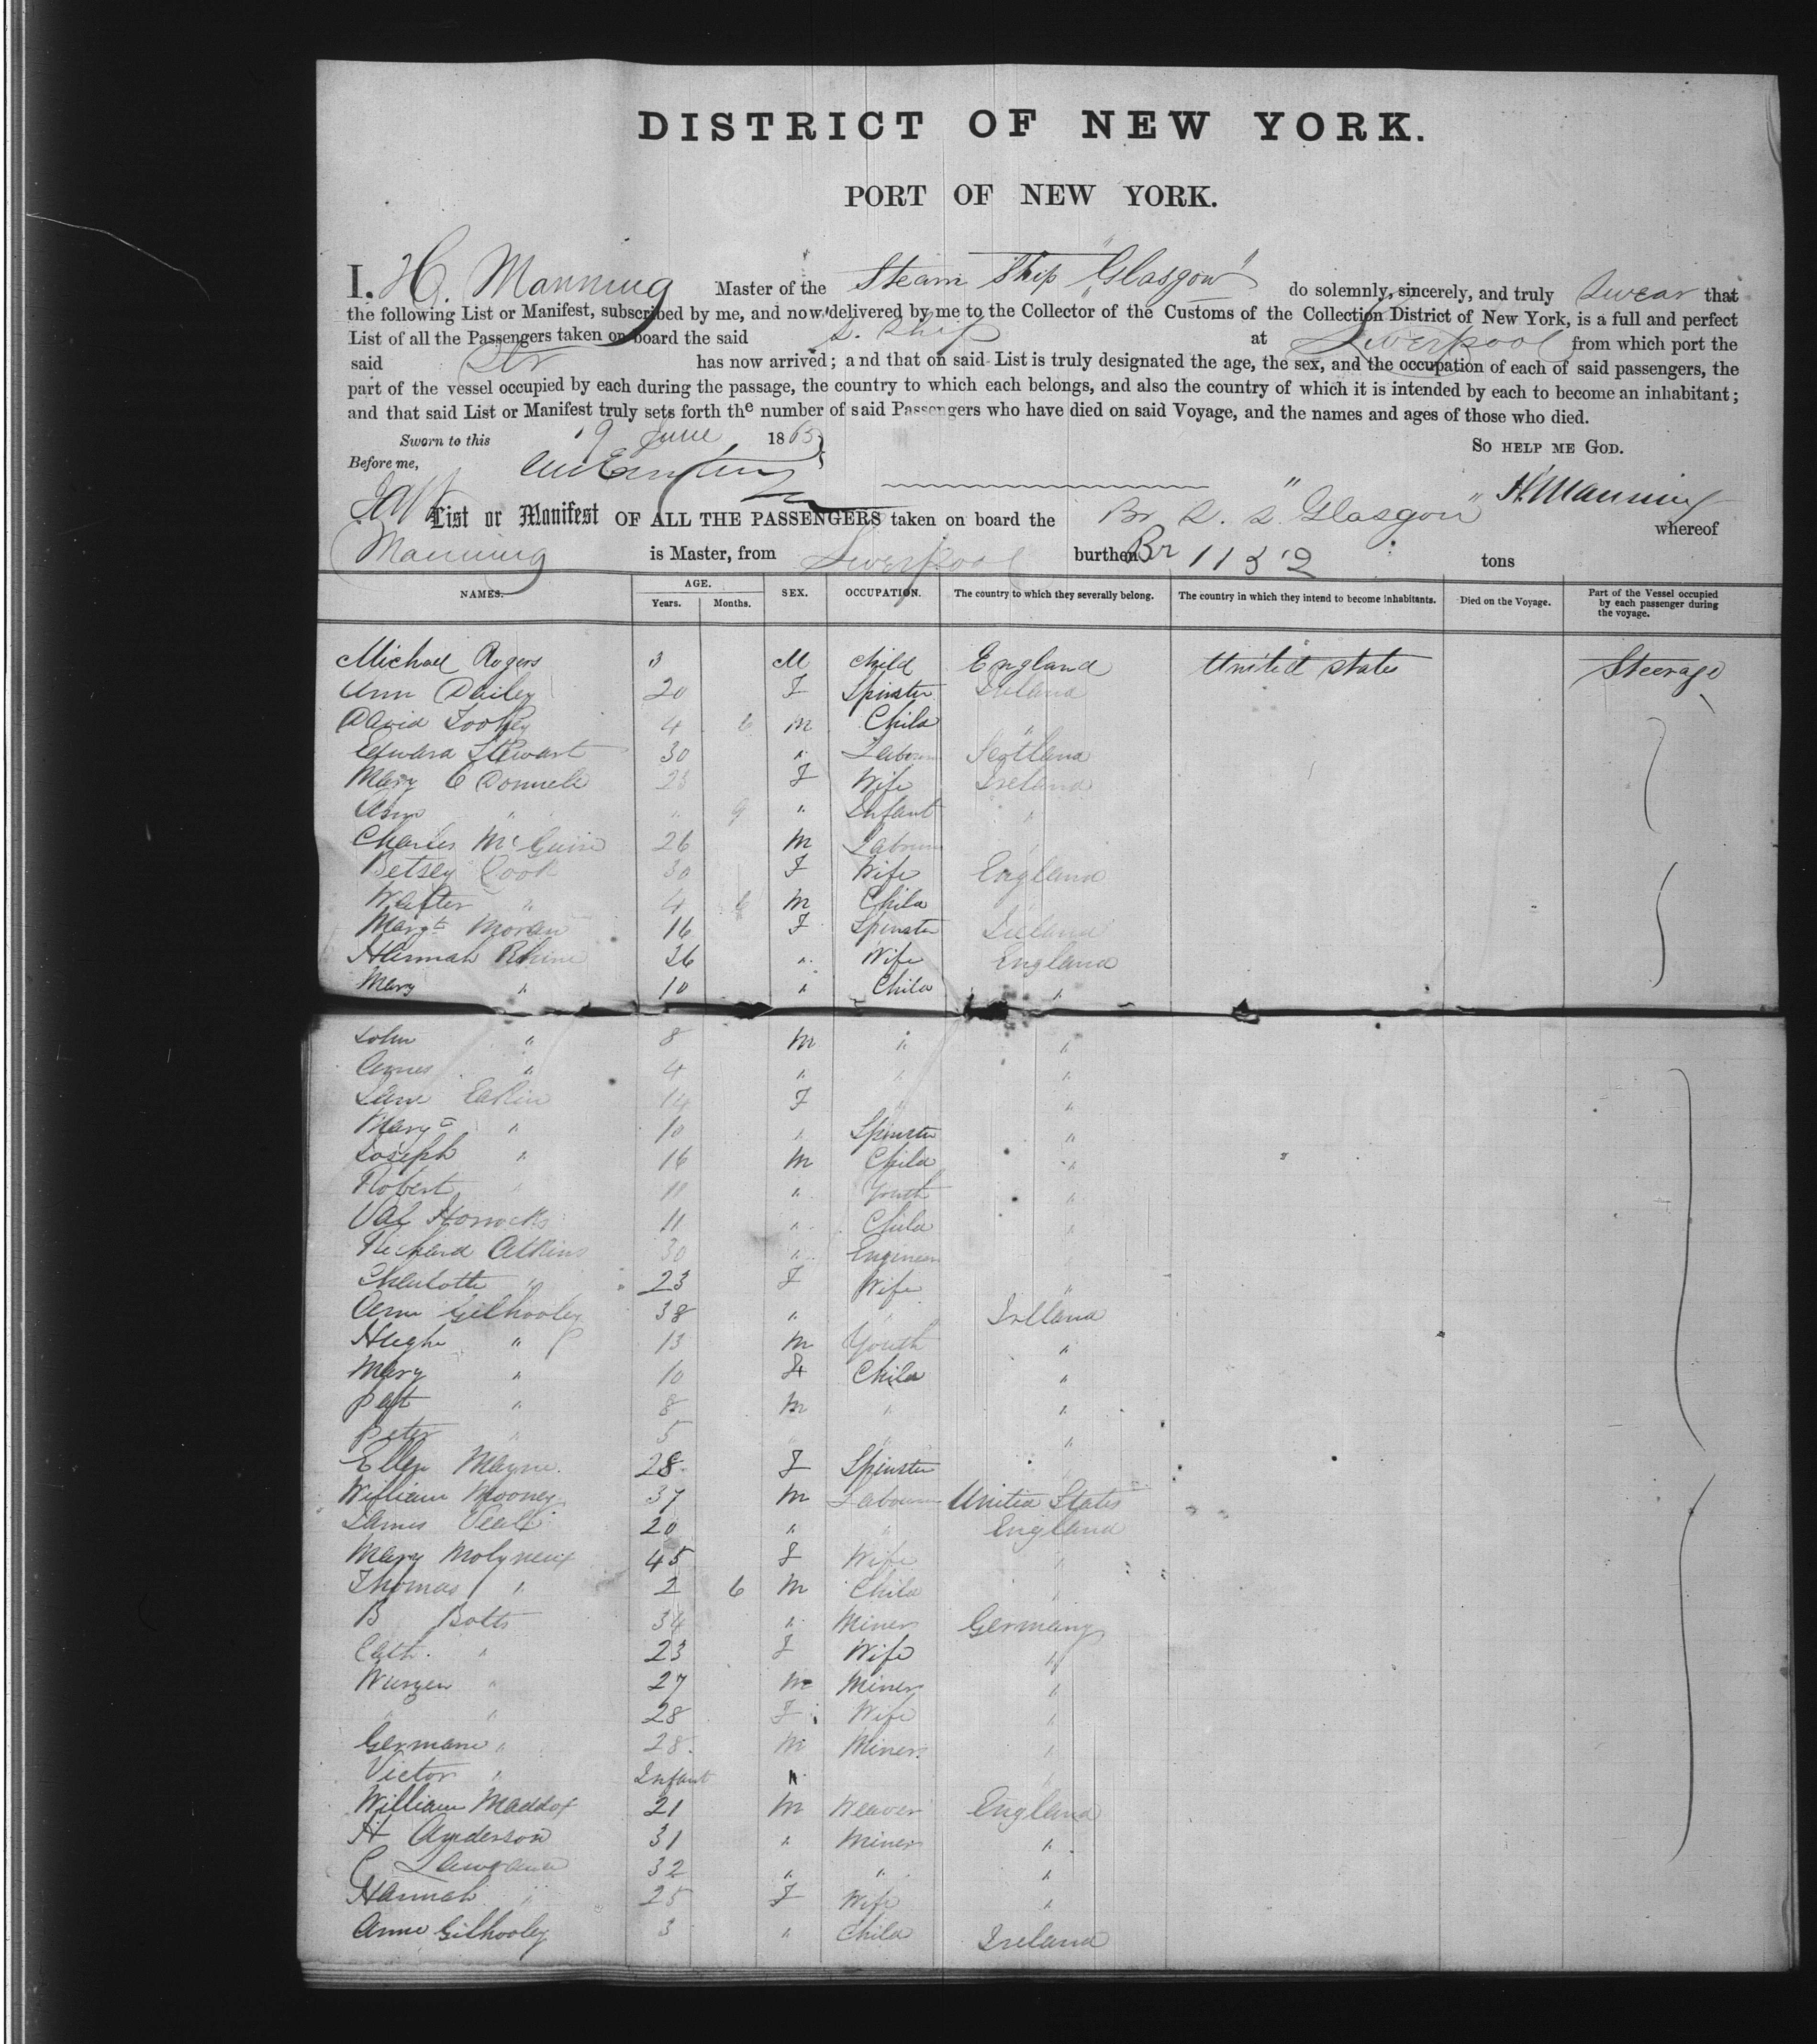 DISTRICT OF NEW YORK.
PORT OF NEW YORK.
I, H. Manning Master of the Steam Ship "Glasgow" do solemnly, sincerely, and truly swear that
the following List or Manifest, subscribed by me, and now delivered by me to the Collector of the Customs of the Collection District of New York, is a full and perfect
List of all the Passengers taken on board the said S. Ship at Liverpool from which port the
said Str has now arrived; and that on said List is truly designated the age, the sex, and the occupation of each of said passengers, the
part of the vessel occupied by each during the passage, the country to which each belongs, and also the country of which it is intended by each to become an inhabitant;
and that said List or Manifest truly sets forth the number of said Passengers who have died on said Voyage, and the names and ages of those who died.
Sworn to this 19 June 1865 SO HELP ME GOD.
Before me,
H. Manning
List or Manifest OF ALL THE PASSENGERS taken on board the Br S. S. "Glasgow" whereof
Manning is Master, from Liverpool burthen Br 1152 tons
NAMES. AGE. Years. Months. SEX. OCCUPATION. The country to which they severally belong. The country in which they intend to become inhabitants. Died on the Voyage. Part of the Vessel occupied by each passenger during the voyage.
Michael Rogers 3 M Child England United States Steerage
Ann Dailey 20 F Spinster Ireland
David Toohey 4 6 M Child "
Edward Stewart 30 " Labourer Scotland
Mary O Donnell 23 F Wife Ireland
Ann " " 9 " Infant "
Charles McGuire 26 M Labourer
Betsey Cook 30 F Wife England
Walter " 4 6 M Child
Margt Moran 16 F Spinster Ireland
Hannah Rhine 36 " Wife England
Mary " 10 " Child "
John " 8 M " "
Agnes " 4 " " "
Jane Eakin 14 F " "
Margt " 10 " Spinster "
Joseph " 16 M Child "
Robert " 11 " Youth "
Val Horrocks 11 " Child "
Richard Atkins 30 " Engineer
Charlotte " 23 F Wife "
Ann Gilhooley 38 " " Ireland
Hugh " 13 M Youth "
Mary " 10 F Child "
Patt " 8 M " "
Peter " 5 "
Ellen Mayne 28 F Spinster
William Mooney 37 M Labourer United States
James Veale 20 " " England
Mary Molyneux 45 F Wife "
Thomas " 2 6 M Child "
B Botts 34 " Miner Germany
Cath. " 23 F Wife "
Wurzen " 27 M Miner "
" " 28 F Wife "
Germain " 28 M Miner "
Victor " Infant "
William Maddox 21 M Weaver England
H Anderson 31 " Miner "
C Lawrance 32 " " "
Hannah " 25 F Wife "
Anne Gilhooley 3 " Child Ireland